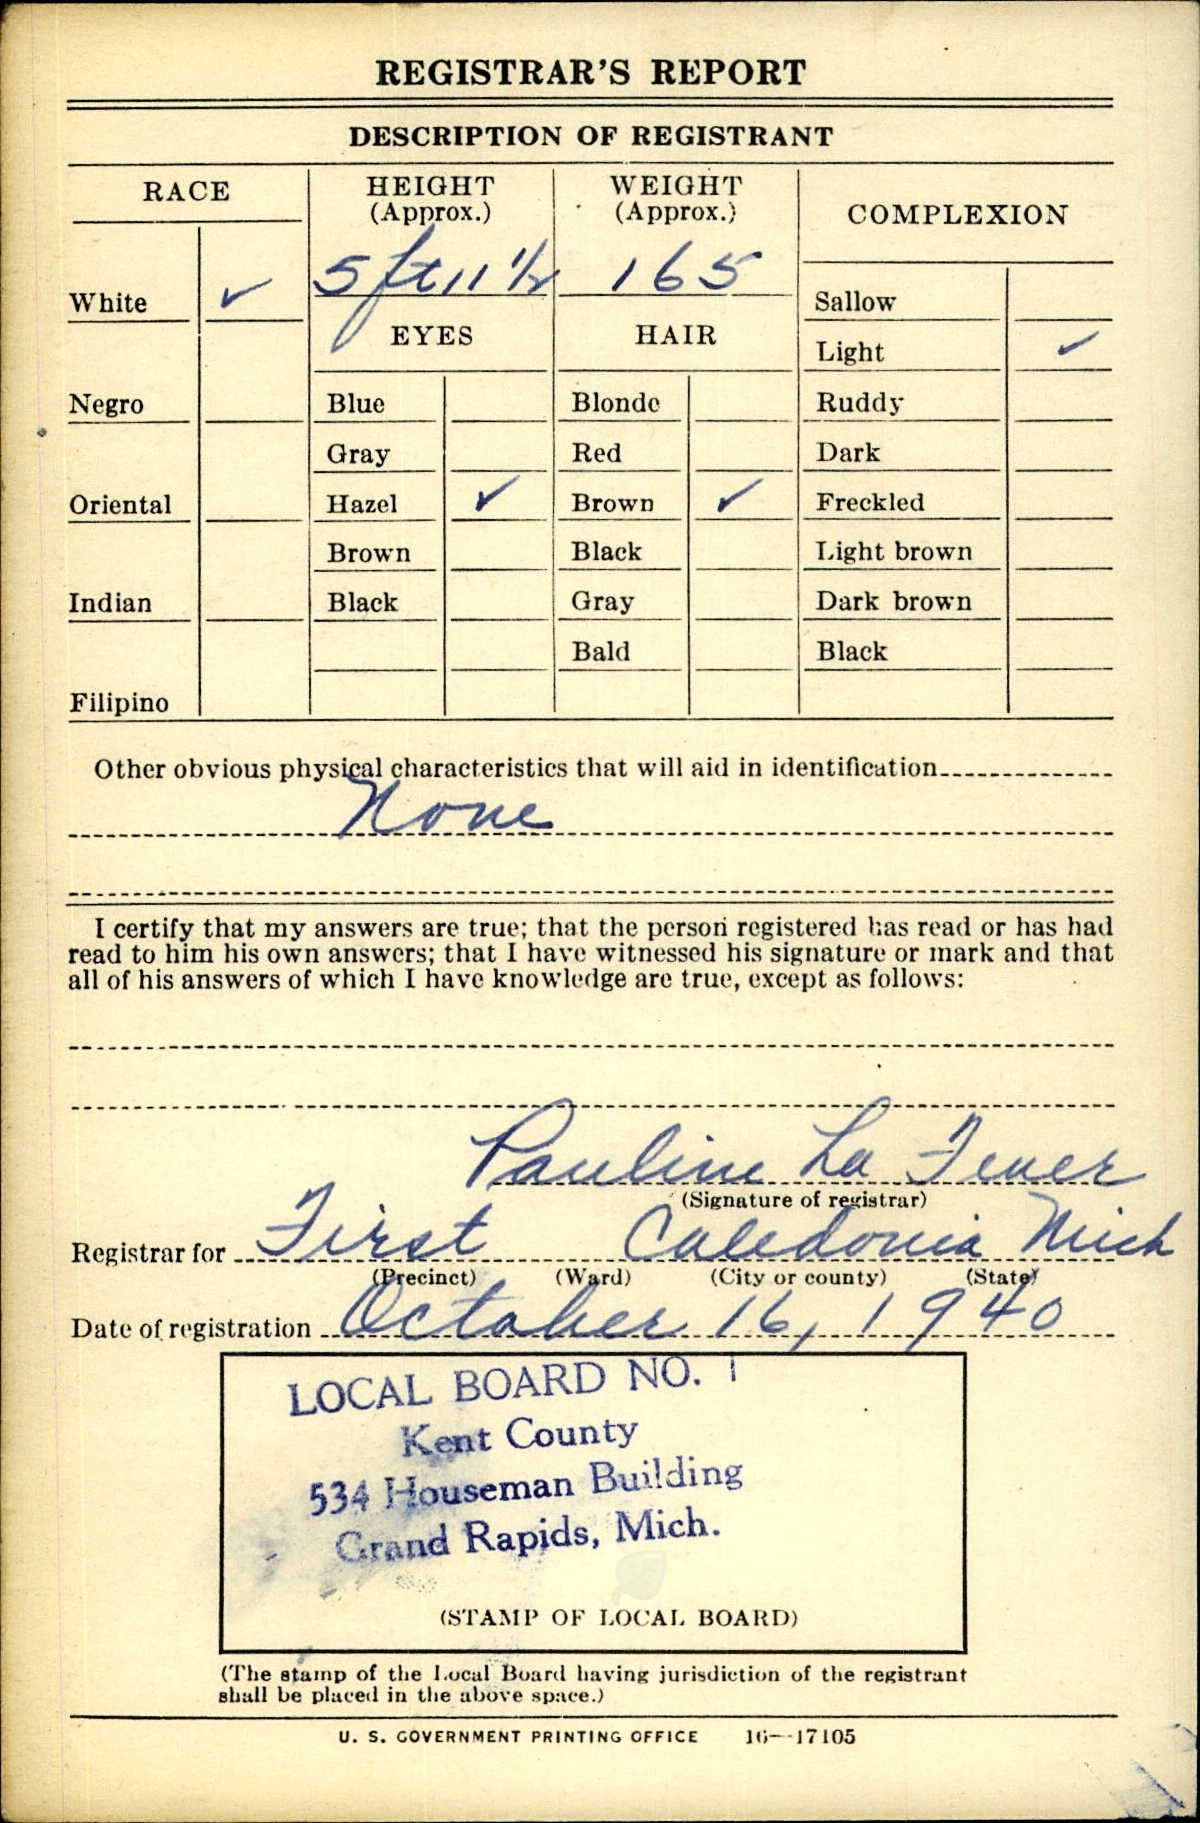 REGISTRAR'S REPORT
DESCRIPTION OF REGISTRANT
RACE
HEIGHT
(Approx.)
WEIGHT
(Approx.)
COMPLEXION
5 ft 11 1/2
165
White ✓
EYES
HAIR
Sallow
Light ✓
Negro
Blue
Blonde
Ruddy
Gray
Red
Dark
Oriental
Hazel ✓
Brown ✓
Freckled
Brown
Black
Light brown
Indian
Black
Gray
Dark brown
Bald
Black
Filipino
Other obvious physical characteristics that will aid in identification
None
I certify that my answers are true; that the person registered has read or has had
read to him his own answers; that I have witnessed his signature or mark and that
all of his answers of which I have knowledge are true, except as follows:
Pauline La Fever
(Signature of registrar)
Registrar for First Caledonia Mich
(Precinct) (Ward) (City or county) (State)
Date of registration October 16, 1940
LOCAL BOARD NO. 1
Kent County
534 Houseman Building
Grand Rapids, Mich.
(STAMP OF LOCAL BOARD)
(The stamp of the Local Board having jurisdiction of the registrant
shall be placed in the above space.)
U. S. GOVERNMENT PRINTING OFFICE 16—17105